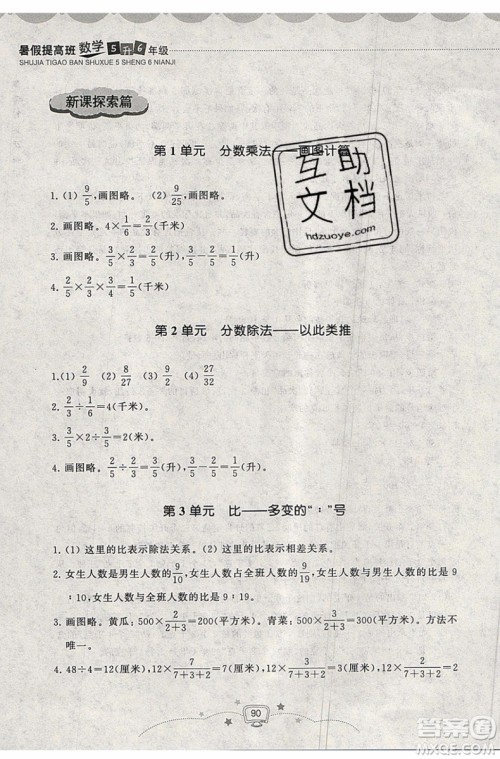 暑假提高班 数学 5升6年级
SHUJIA TIGAO BAN SHUXUE 5 SHENG 6 NIANJI
新课探索篇
第1单元 分数乘法——画图计算
1. (1) 9/5。画图略。 (2) 9/25。画图略。
2. 画图略。4×1/6=2/3(千米)
3. 画图略。2/5×1/3=2/15(升) 2/5-2/15=4/15(升)
4. 2/5×2/3=4/15(千米)
第2单元 分数除法——以此类推
1. (1) 2/9 (2) 8/27 (3) 2/3 (4) 27/32
2. 2/3÷1/6=4(千米)。画图略。
3. 2/5÷1/5=2(米)。画图略。
4. 画图略。2/5÷2/3=3/5(升) 3/5-2/5=1/5(升)
第3单元 比——多变的“∶”号
1. (1) 这里的比表示除法关系。 (2) 这里的比表示相差关系。
2. 女生人数是男生人数的9/10,女生人数占全班人数的9/19。女生人数与男生人数比是9
∶10,女生人数与全班人数比是9∶19。
3. 画图略。黄瓜:500×2/5=200(平方米) 青菜:500×3/5=300(平方米) 方法不
唯一。
4. 48÷4=12(厘米) 12×7/(7+3+2)=7(厘米) 12×3/(7+3+2)=3(厘米) 12×2/(7+3+2)
90
互助
文档
hdzuoye.com
答案圈
MXQE.COM